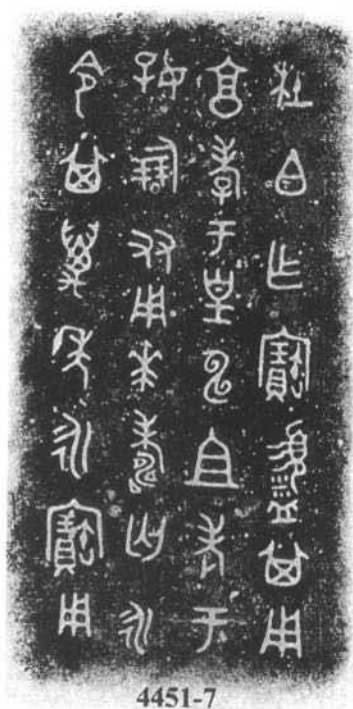 杜白乍寶盨其用
亯孝于皇申且考于
好倗友用𠦪壽匄永
令其萬年永寶用
4451-7